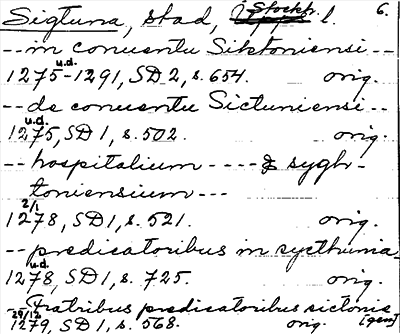 Sigtuna, stad, Stockh. l. 6.
-- in conuentu Siktoniensi --
1275-1291, u.d. SD 2, s. 654. orig.
-- de conuentu Sictuniensi --
1275, u.d. SD 1, s. 502. orig.
-- hospitalium ---- & sygh-
toniensium ---
1278, 2/1 SD 1, s. 521. orig.
-- predicatoribus in sycthunia
1278, u.d. SD 1, s. 725. orig.
Fratribus predicatoribus sictonie
1279, 29/12 SD 1, s. 568. orig. [gen]